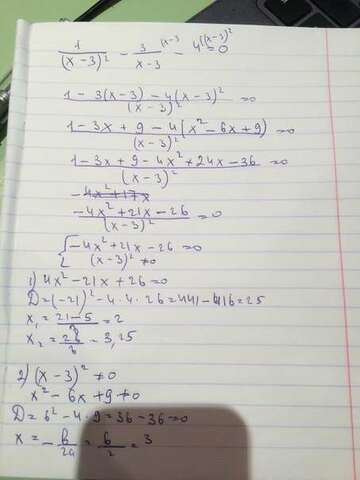 1/(x-3)² - 3/(x-3) ^(x-3) - 4 ^((x-3)²) = 0
(1-3(x-3)-4(x-3)²)/(x-3)² = 0
(1-3x+9-4(x²-6x+9))/(x-3)² = 0
(1-3x+9-4x²+24x-36)/(x-3)² = 0
-4x²+17x
(-4x²+21x-26)/(x-3)² = 0
{ -4x²+21x-26=0
(x-3)² ≠ 0
1) 4x²-21x+26=0
D=(-21)²-4·4·26=441-416=25
x₁ = (21-5)/8 = 2
x₂ = 26/8 = 3,25
2) (x-3)² ≠ 0
x²-6x+9 ≠ 0
D=6²-4·9=36-36=0
x = -b/2a = 6/2 = 3